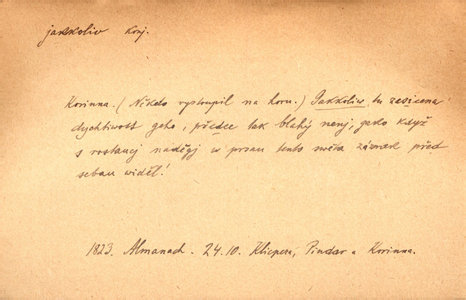 jakkoliv konj.
Korinna. (Nikdo vystoupil na horu.) Jakkoliv tu zesícena
dychtiwost geho, předce tak blahý nenj, jako když
s rostaucj naděgj w prsau tento swěta zázrak před
sebau widěl!
1823. Almanach. 24.10. Klicpera, Pindar a Korinna.